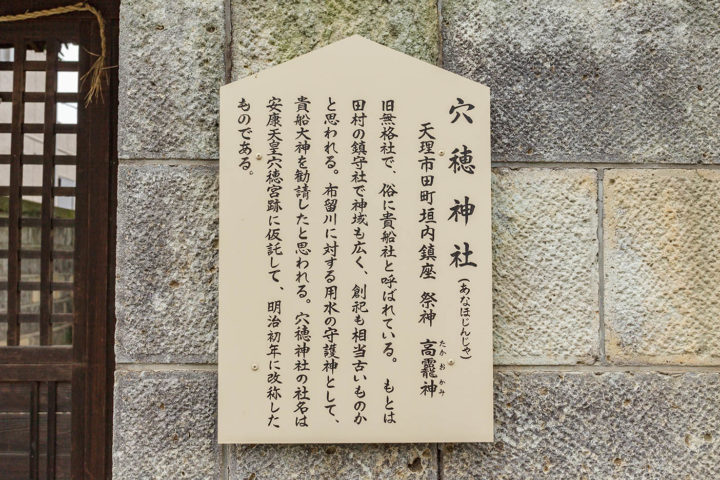 穴穂神社（あなほじんじゃ）
天理市田町垣内鎮座 祭神 高龗神
たかおかみ
旧無格社で、俗に貴船社と呼ばれている。 もとは
田村の鎮守社で神域も広く、創祀も相当古いものか
と思われる。布留川に対する用水の守護神として、
貴船大神を勧請したと思われる。穴穂神社の社名は
安康天皇穴穂宮跡に仮託して、明治初年に改称した
ものである。